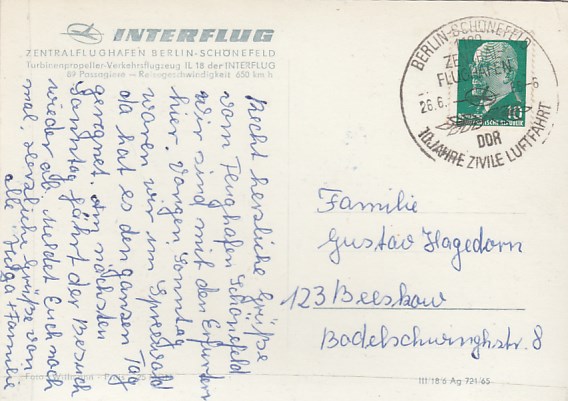 INTERFLUG
ZENTRALFLUGHAFEN BERLIN-SCHÖNEFELD
Turbinenpropeller-Verkehrsflugzeug IL 18 der INTERFLUG
89 Passagiere — Reisegeschwindigkeit 650 km/h
BERLIN-SCHÖNEFELD
FLUGHAFEN
26.6.
DDR
10 JAHRE ZIVILE LUFTFAHRT
10
Recht herzliche Grüße
vom Flughafen Schönefeld
wir sind mit den Erfurtern
hier. Vorigen Sonntag
waren wir im Spreewald
da hat es den ganzen Tag
geregnet. Am nächsten
Sonntag fährt der Besuch
wieder ab. Meldet Euch noch
mal, Herzliche Grüße von
alle Helga + Familie
Familie
Gustav Hagedorn
123 Beeskow
Bodelschwinghstr. 8
III 18 6 Ag 721/65